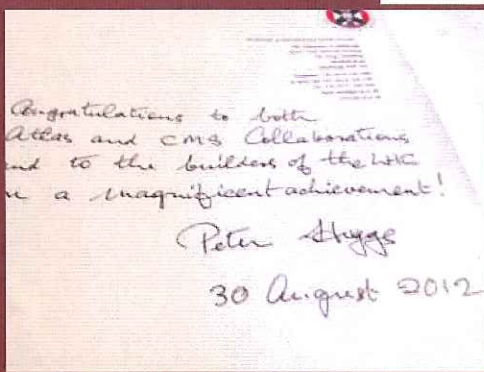 Congratulations to both
Atlas and CMS Collaborations
and to the builders of the LHC
a magnificent achievement!
Peter Higgs
30 August 2012